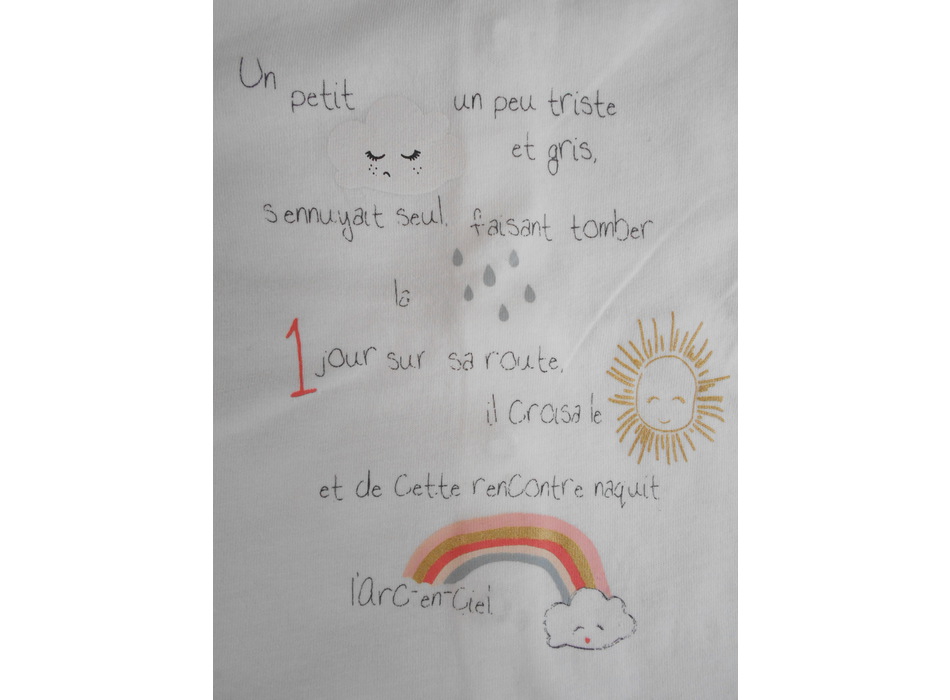 Un
petit un peu triste
et gris,
s'ennuyait seul. faisant tomber
la
1 jour sur sa route,
il Croisa le
et de Cette renContre naquit
l'Arc-en-Ciel